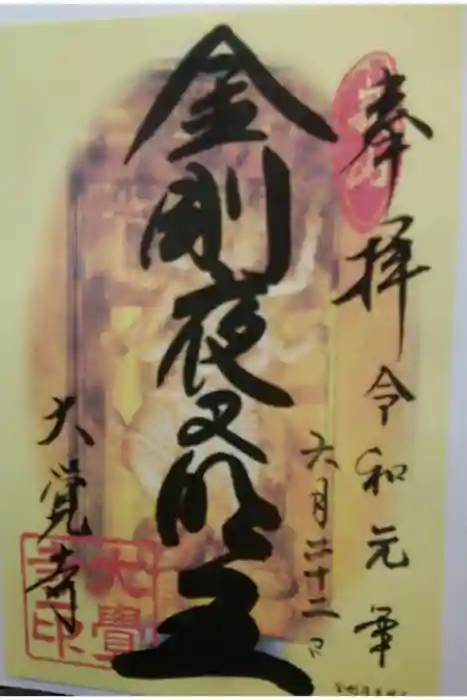 奉拝
令和元年
六月二十二日
金剛夜叉明王
大覚寺
大覺寺印